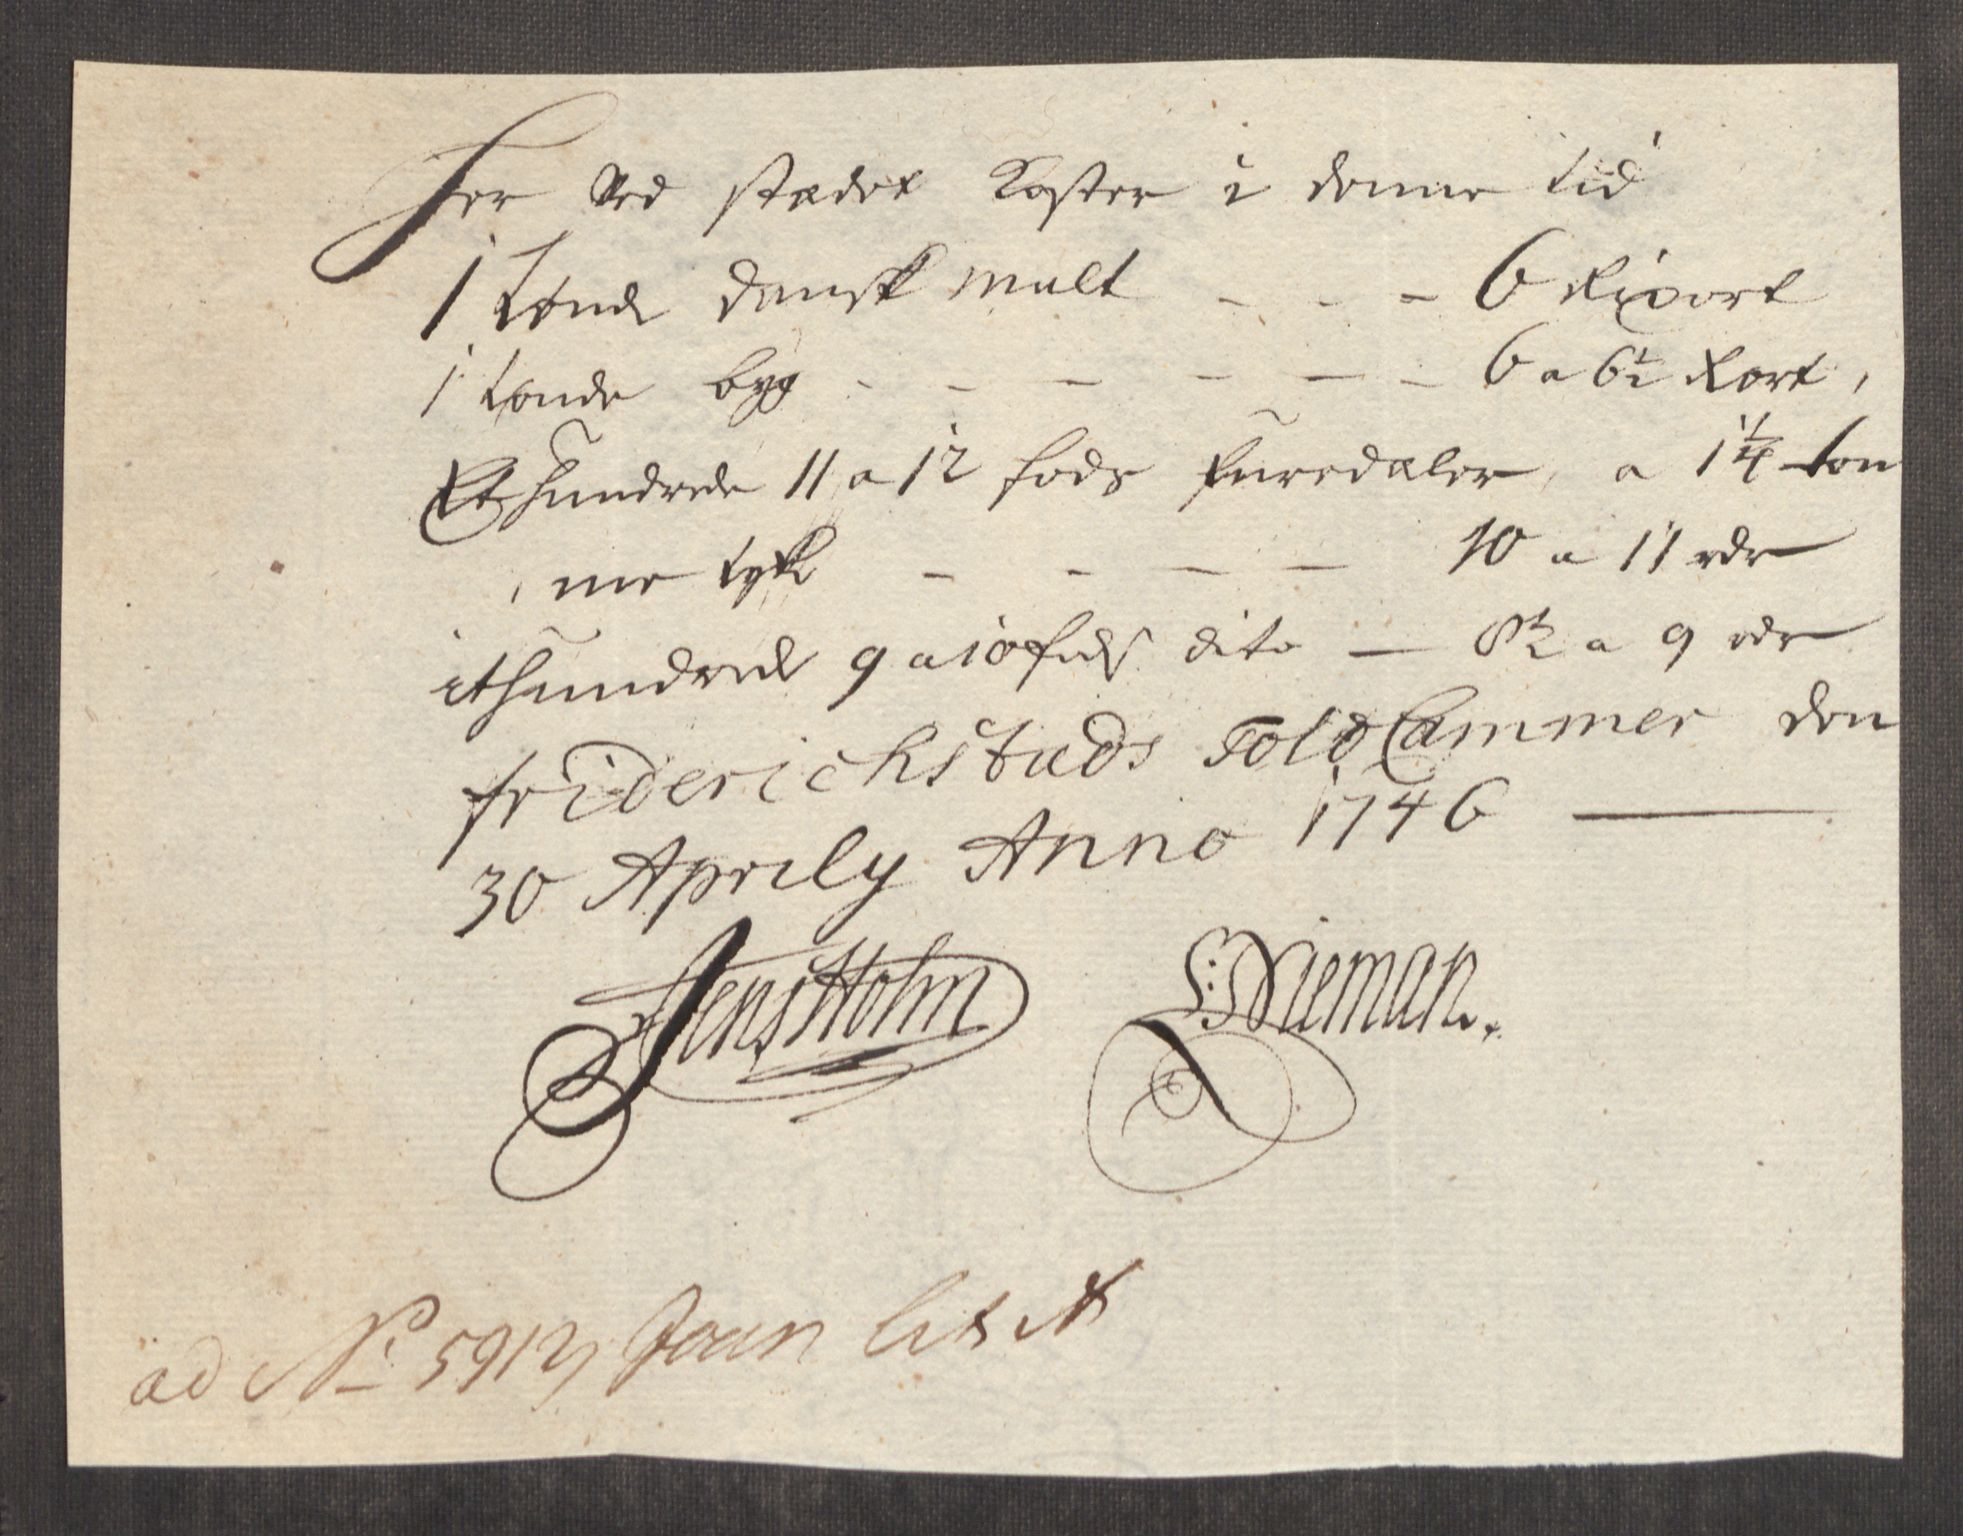 Her Ved stædet Koster i denne tid
1 tønde dansk malt - - - 6 Rixort
1 tønde byg - - - - - - 6 a 6½ Rort,
Et hundrede 11 a 12 fods furredæler, a 1¼ tom
me tyk - - - - 10 a 11 rdr
it hundrede 9 a 10 fods dito - 8½ a 9 rdr
friderichstads Told Cammer den
30 Aprily Anno 1746
Jens Holm S: Nieman.
ad No 5912, Joun lit A